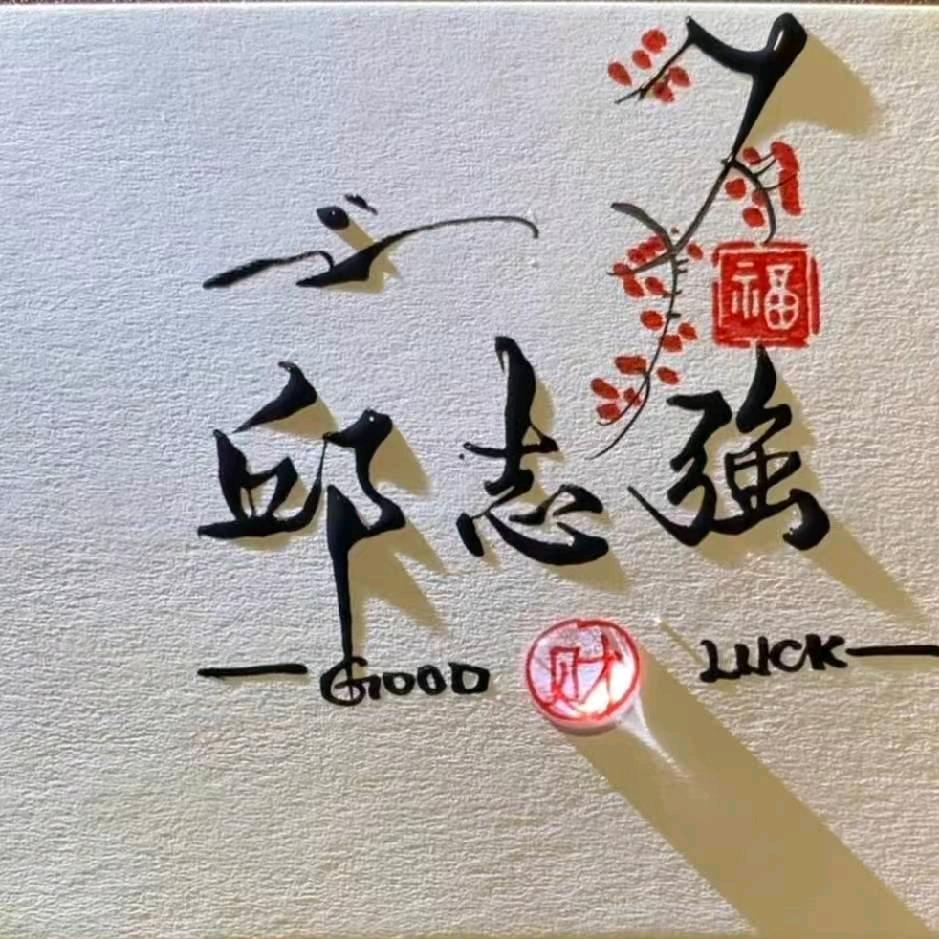 福
邱志強
GOOD 财 LUCK